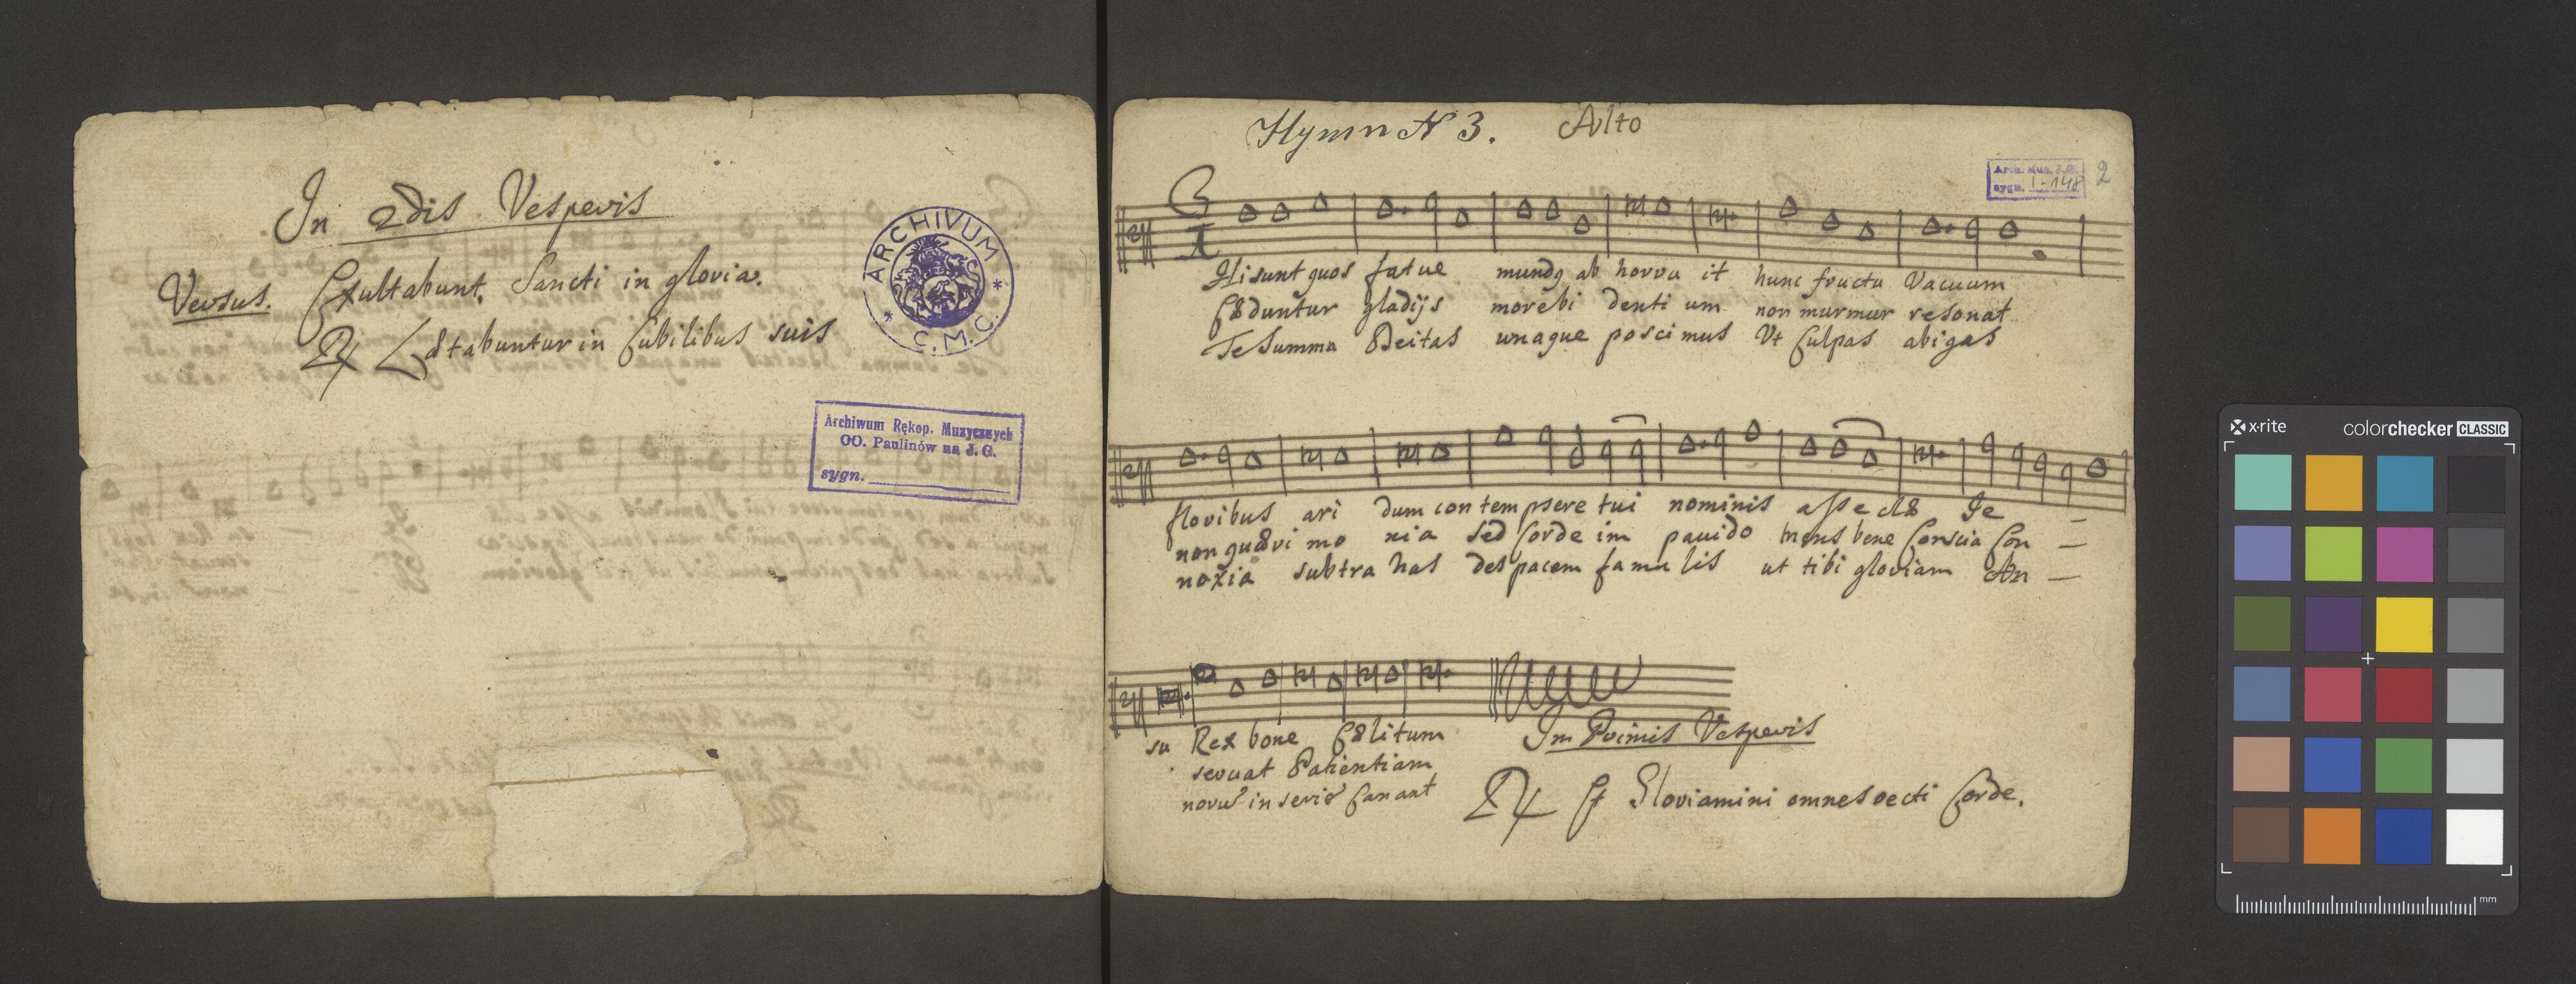 In 2dis Vesperis
Versus. Exultabunt. Sancti in gloria.
℟ Lætabuntur in Cubilibus suis
ARCHIVUM * C.M.C. *
Archiwum Rękop. Muzycznych
OO. Paulinów na J. G.
sygn.
Hymn N 3. Alto
Arch. Muz. J.G.
sygn. I-148
2
Hi sunt quos fatue mundq ab horru it hunc fructu Vacuum
Cæduntur gladijs more bi denti um non murmur resonat
Te Summa Deitas unaque poscimus Vt Culpas abigas
floribus ari dum con tempsere tui nominis asse clæ Ie
non quæri mo nia sed Corde im pauido mens bene Conscia Con -
noxia subtra has des pacem famu lis ut tibi gloriam An -
su Rex bone Cælitum
seruat Patientiam
in serie Canant
In Primis Vesperis
℟ Et Gloriamini omnes recti Corde.
x-rite
colorchecker CLASSIC
mm